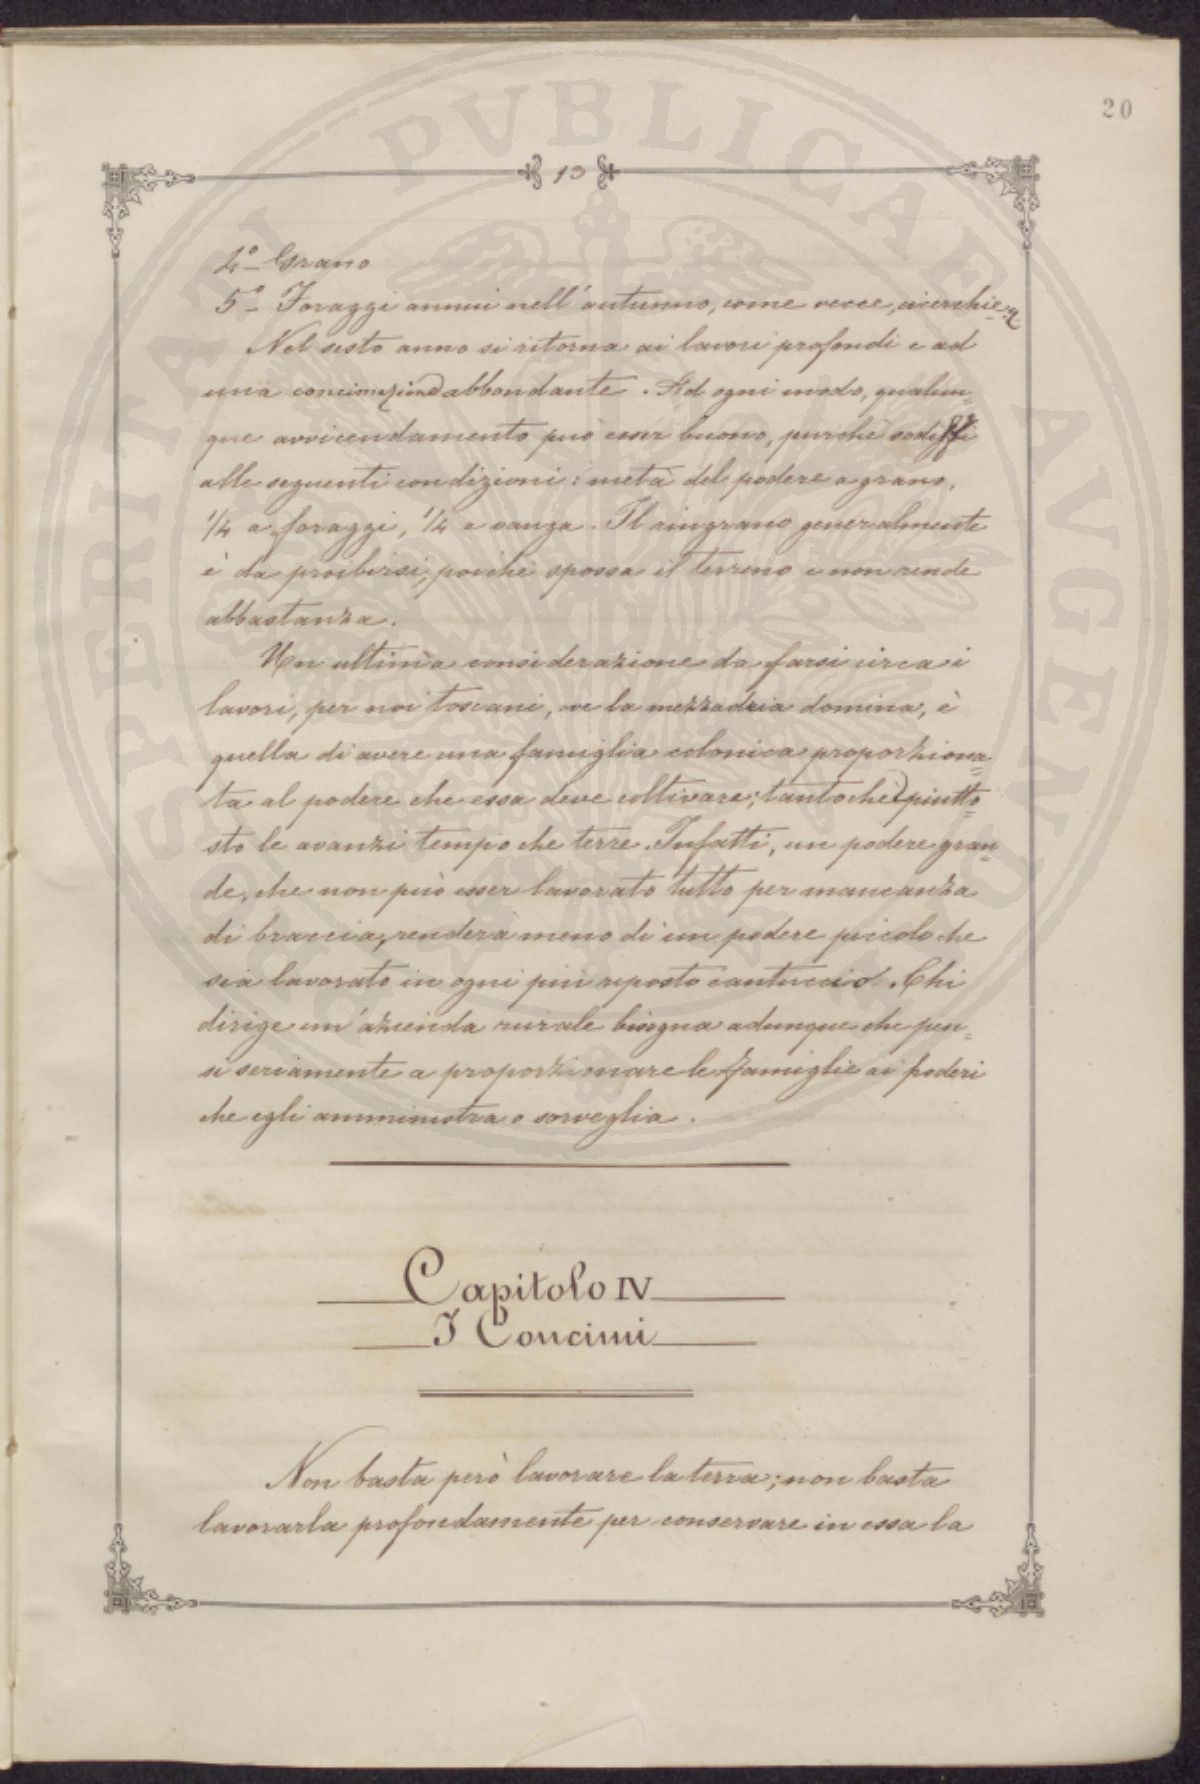 20
19
4º - Grano
5º - Foraggi annui nell'autunno, come vecce, cicerchie
Nel sesto anno si ritorna ai lavori profondi e ad
una concimazione abbondante. Ad ogni modo, qualun=
que avvicendamento può esser buono, purchè sodisfi
alle seguenti condizioni: metà del podere a grano,
1/4 a foraggi, 1/4 a vanga. Il ringrano generalmente
è da proibirsi, poichè spossa il terreno e non rende
abbastanza.
Un ultima considerazione da farsi circa i
lavori, per noi toscani, ove la mezzadria domina, è
quella di avere una famiglia colonica proporziona=
ta al podere che essa deve coltivare; tantochè piutto=
sto le avanzi tempo che terre. Infatti, un podere gran=
de, che non può esser lavorato tutto per mancanza
di braccia, renderà meno di un podere piccolo che
sia lavorato in ogni più riposto cantuccio. Chi
dirige un'azienda rurale bisogna adunque che pen=
si seriamente a proporzionare le famiglie ai poderi
che egli amministra o sorveglia.
Capitolo IV
I Concimi
Non basta però lavorare la terra; non basta
lavorarla profondamente per conservare in essa la
PROSPERITATI PVBLICAE AVGENDAE